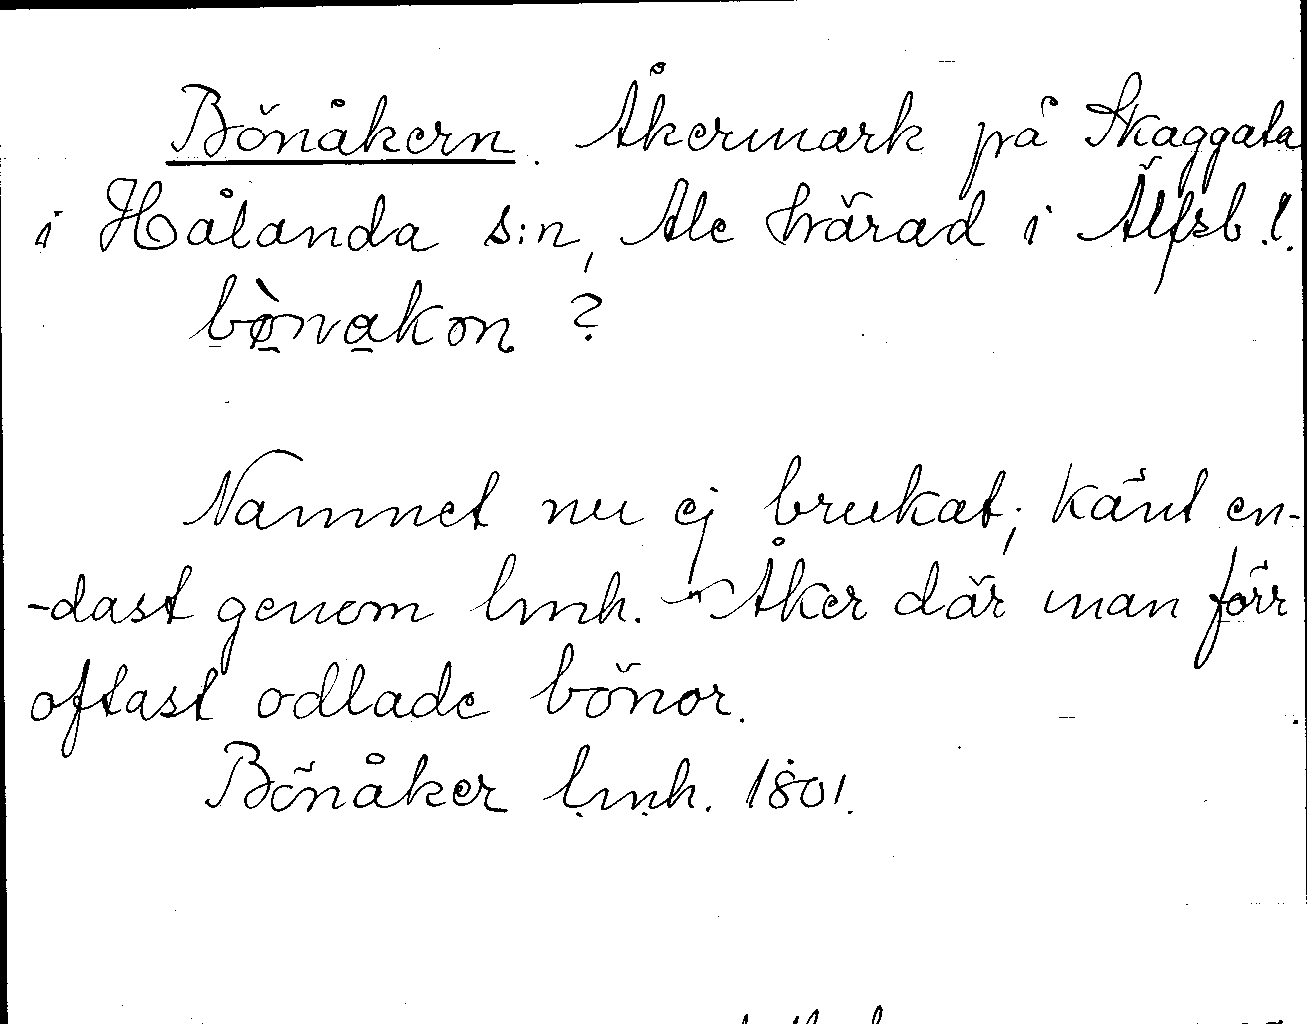 Bönåkern. Åkermark på Skaggata
i Hålanda s:n, Ale härad i Älfsb. l.
bø̀nakon ?
Namnet nu ej brukat; känt en-
-dast genom lmh. - Åker där man förr
oftast odlade bönor.
Bönåker lmh. 1801.